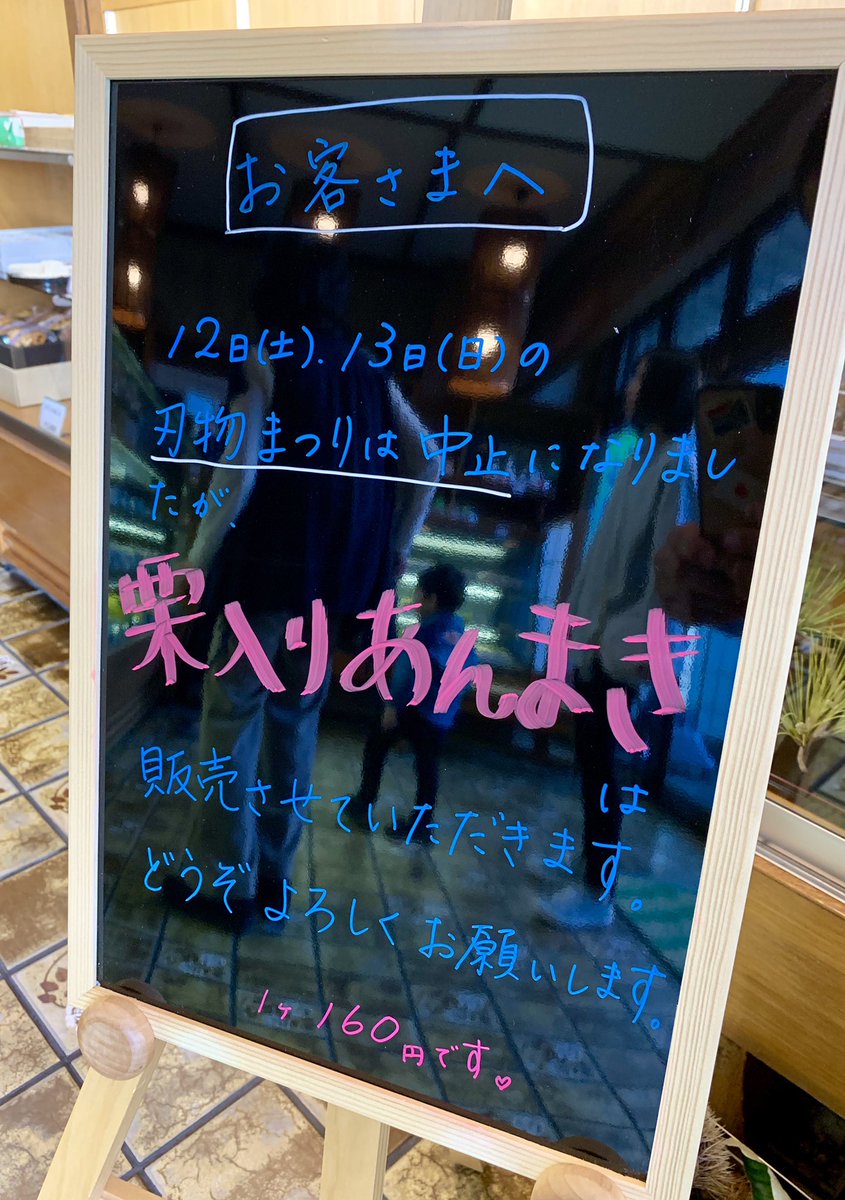 お客さまへ
12日(土)、13日(日)の
刃物まつりは中止になりまし
たが、
栗入りあんまき
は
販売させていただきます。
どうぞよろしくお願いします。
1ヶ160円です♡